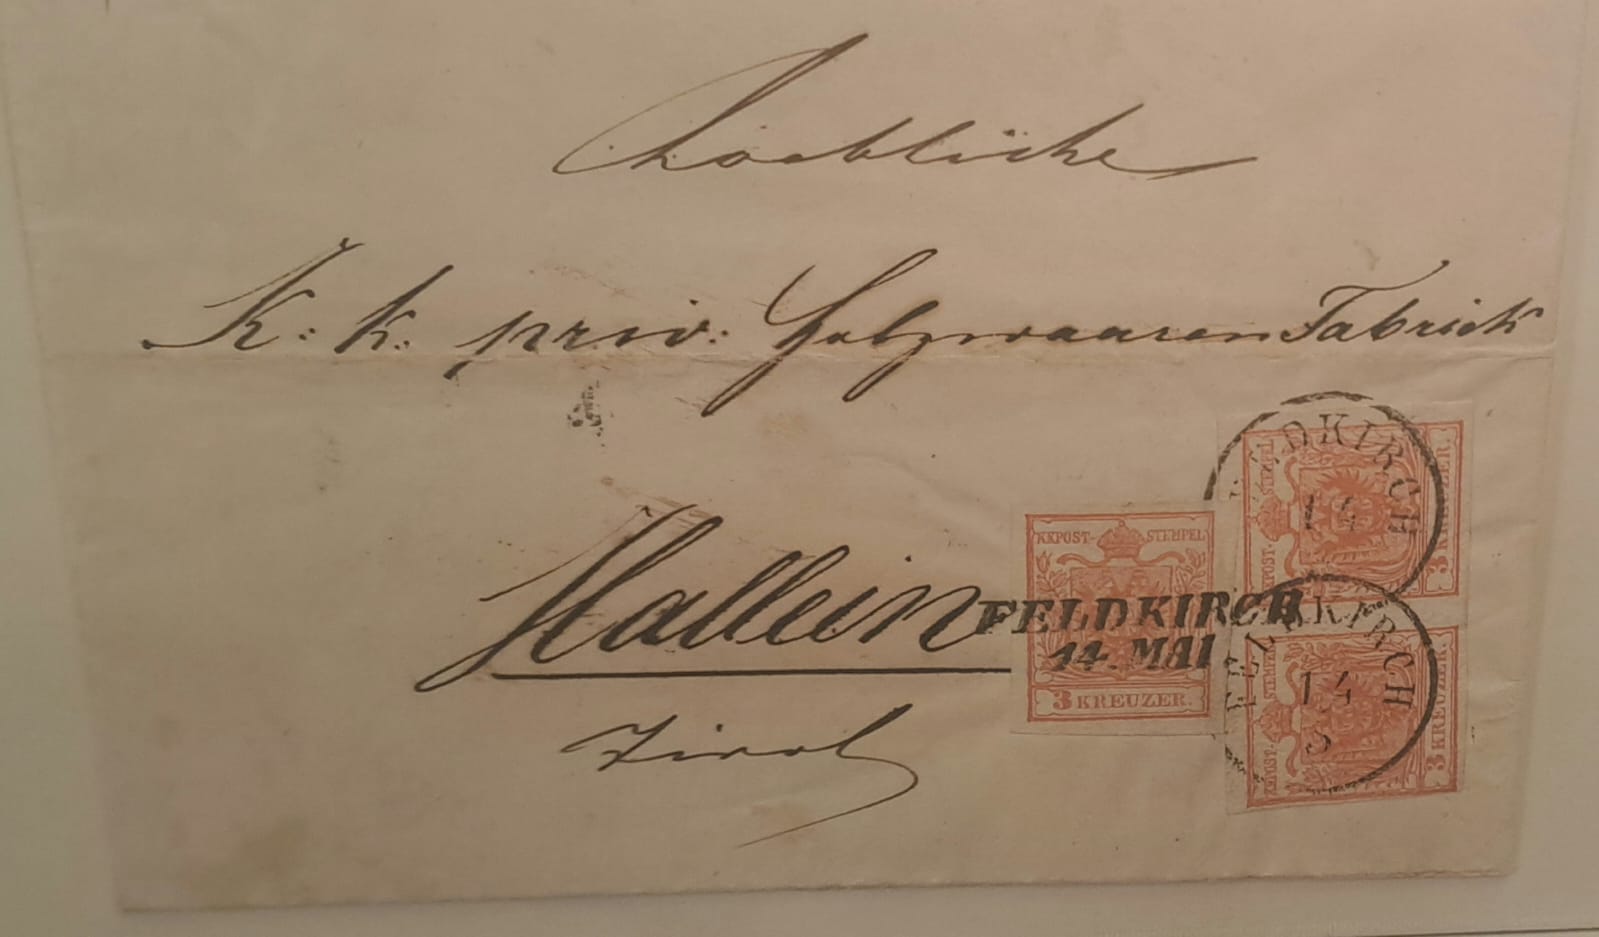 Loebliche
K: k: priv: Holzwaaren Fabrick
Hallein
Tirol
KKPOST-STEMPEL
3 KREUZER.
FELDKIRCH
14. MAI
KKPOST-STEMPEL
3 KREUZER.
FELDKIRCH
14
KKPOST-STEMPEL
3 KREUZER.
FELDKIRCH
14